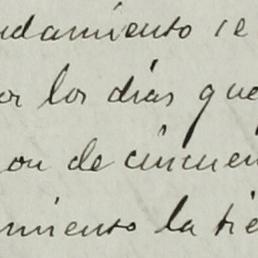 ndamiento se
or los dias que
on de cincuen
miento la tie